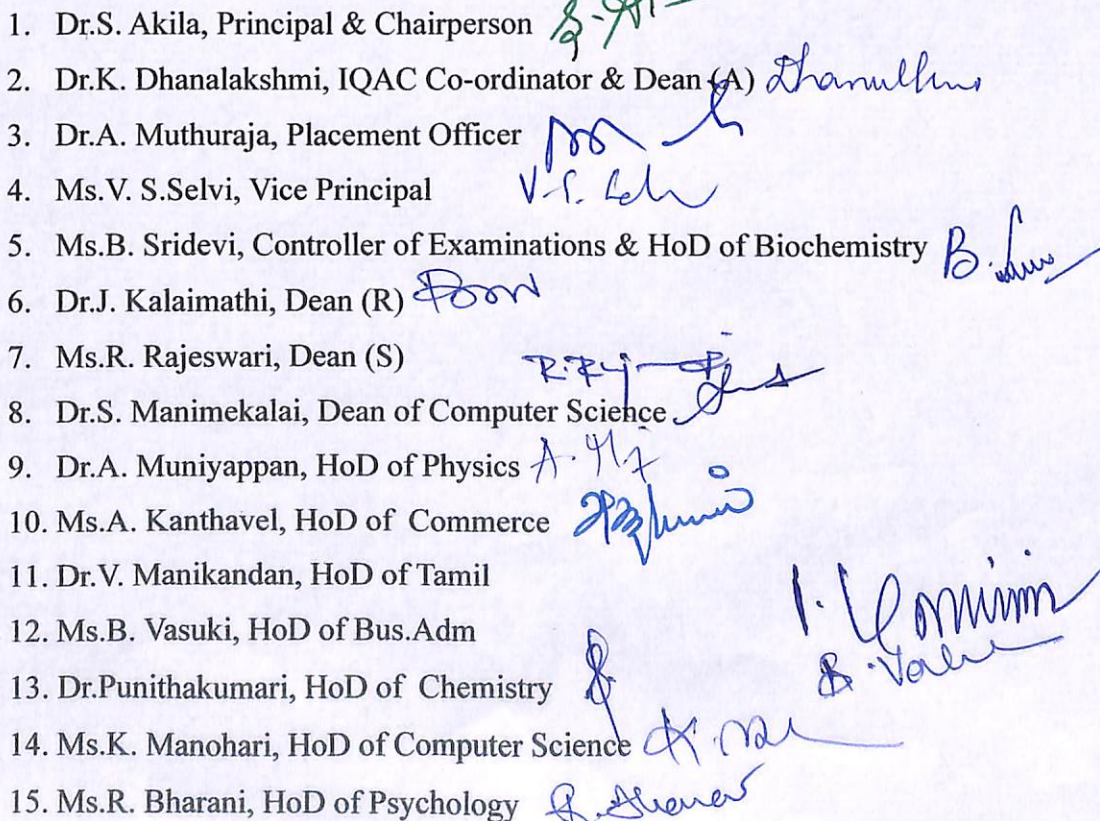 1. Dr.S. Akila, Principal & Chairperson
2. Dr.K. Dhanalakshmi, IQAC Co-ordinator & Dean (A)
3. Dr.A. Muthuraja, Placement Officer
4. Ms.V. S.Selvi, Vice Principal
5. Ms.B. Sridevi, Controller of Examinations & HoD of Biochemistry
6. Dr.J. Kalaimathi, Dean (R)
7. Ms.R. Rajeswari, Dean (S)
8. Dr.S. Manimekalai, Dean of Computer Science
9. Dr.A. Muniyappan, HoD of Physics
10. Ms.A. Kanthavel, HoD of Commerce
11. Dr.V. Manikandan, HoD of Tamil
12. Ms.B. Vasuki, HoD of Bus.Adm
13. Dr.Punithakumari, HoD of Chemistry
14. Ms.K. Manohari, HoD of Computer Science
15. Ms.R. Bharani, HoD of Psychology